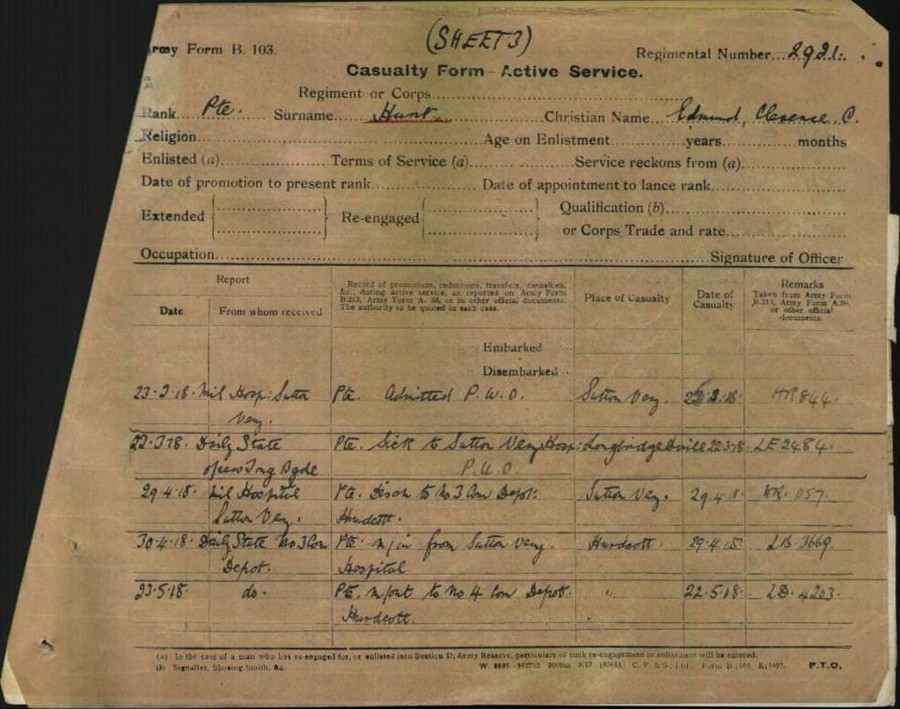 (SHEET 3)
Army Form B. 103.
Regimental Number 2921.
Casualty Form—Active Service.
Regiment or Corps
Rank Pte. Surname Hunt Christian Name Edmund, Clarence C.
Religion Age on Enlistment years months
Enlisted (a) Terms of Service (a) Service reckons from (a)
Date of promotion to present rank Date of appointment to lance rank
Extended Re-engaged Qualification (b)
or Corps Trade and rate
Occupation Signature of Officer
Report
Date From whom received
Record of promotions, reductions, transfers, casualties,
&c., during active service, as reported on Army Form
B.213, Army Form A. 36, or in other official documents.
The authority to be quoted in each case.
Place of Casualty
Date of
Casualty
Remarks
Taken from Army Form
B.213, Army Form A.36,
or other official
documents.
Embarked
Disembarked
23-2-18 Mil Hosp: Sutton Pte. Admitted P.U.O. Sutton Veny. 3.18 844
Veny.
22-3-18 Daily State Pte. Sick to Sutton Veny Hosp: Longbridge Deverill 22.3.18 LE 2484
Trng Bgde P.U.O.
29.4.18 Mil Hospital Pte. Disch to No 3 Com Depot. Sutton Veny. 29.4.18 1157
Sutton Veny. Hurdcott.
30.4.18 Daily State No 3 Com Pte. m/in from Sutton Veny. Hurdcott. 29.4.18 LB 3669
Depot. Hospital
23.5.18. do. Pte. m/out to No 4 Com Depot. " 22.5.18. LD. 4203.
Hurdcott.
(a) In the case of a man who has re-engaged for, or enlisted into Section D, Army Reserve, particulars of such re-engagement or enlistment will be entered.
(b) Signaller, Shoeing-Smith, &c. P.T.O.